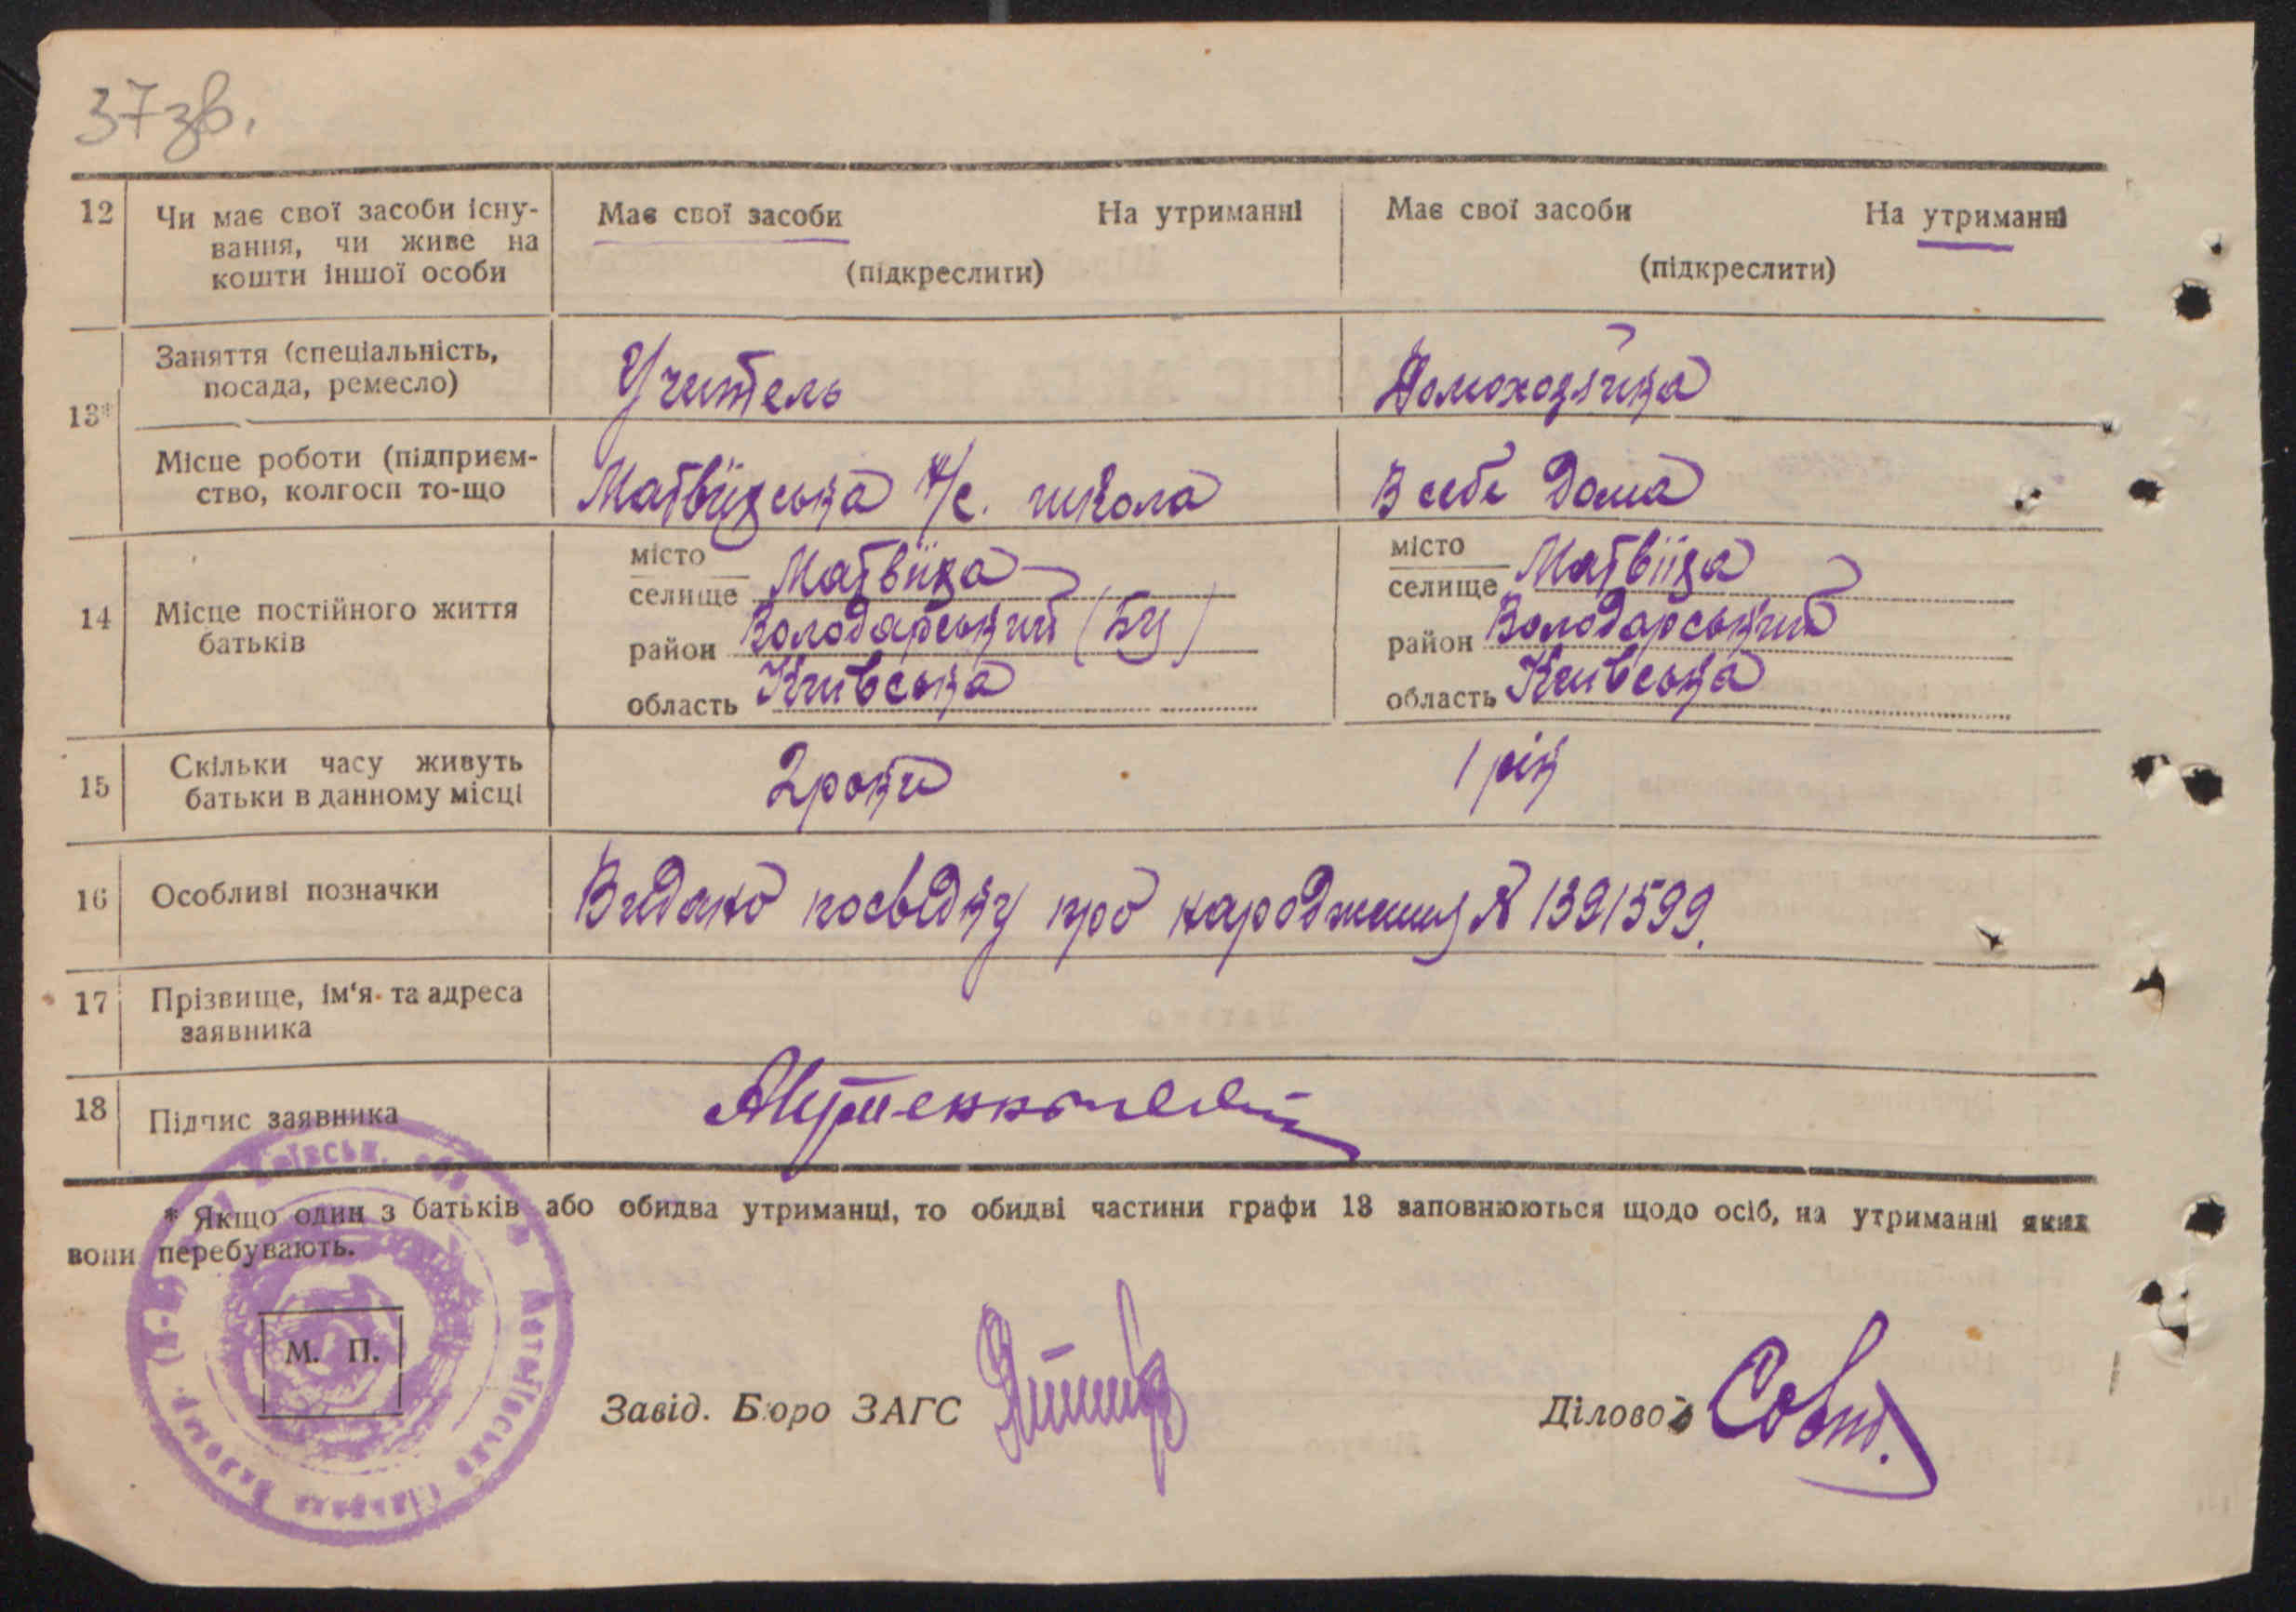 37 зв.
12 Чи має свої засоби існу- Має свої засоби На утриманні Має свої засоби На утриманні
вання, чи живе на
кошти іншої особи (підкреслити) (підкреслити)
13* Заняття (спеціальність, Учитель Домохозяйка
посада, ремесло)
Місце роботи (підприєм- Матвіївська н/с. школа В себе дома
ство, колгосп то-що
14 Місце постійного життя
батьків
місто
селище Матвіїха
район Володарський (БЦ)
область Київська
місто
селище Матвіїха
район Володарський
область Київська
15 Скільки часу живуть 2 роки 1 рік
батьки в данному місці
16 Особливі позначки Видано посвідку про народження № 1391599.
17 Прізвище, ім'я та адреса
заявника
18 Підпис заявника
* Якщо один з батьків або обидва утриманці, то обидві частини графи 13 заповнюються щодо осіб, на утриманні яких
вони перебувають.
М. П.
Завід. Бюро ЗАГС
Діловод